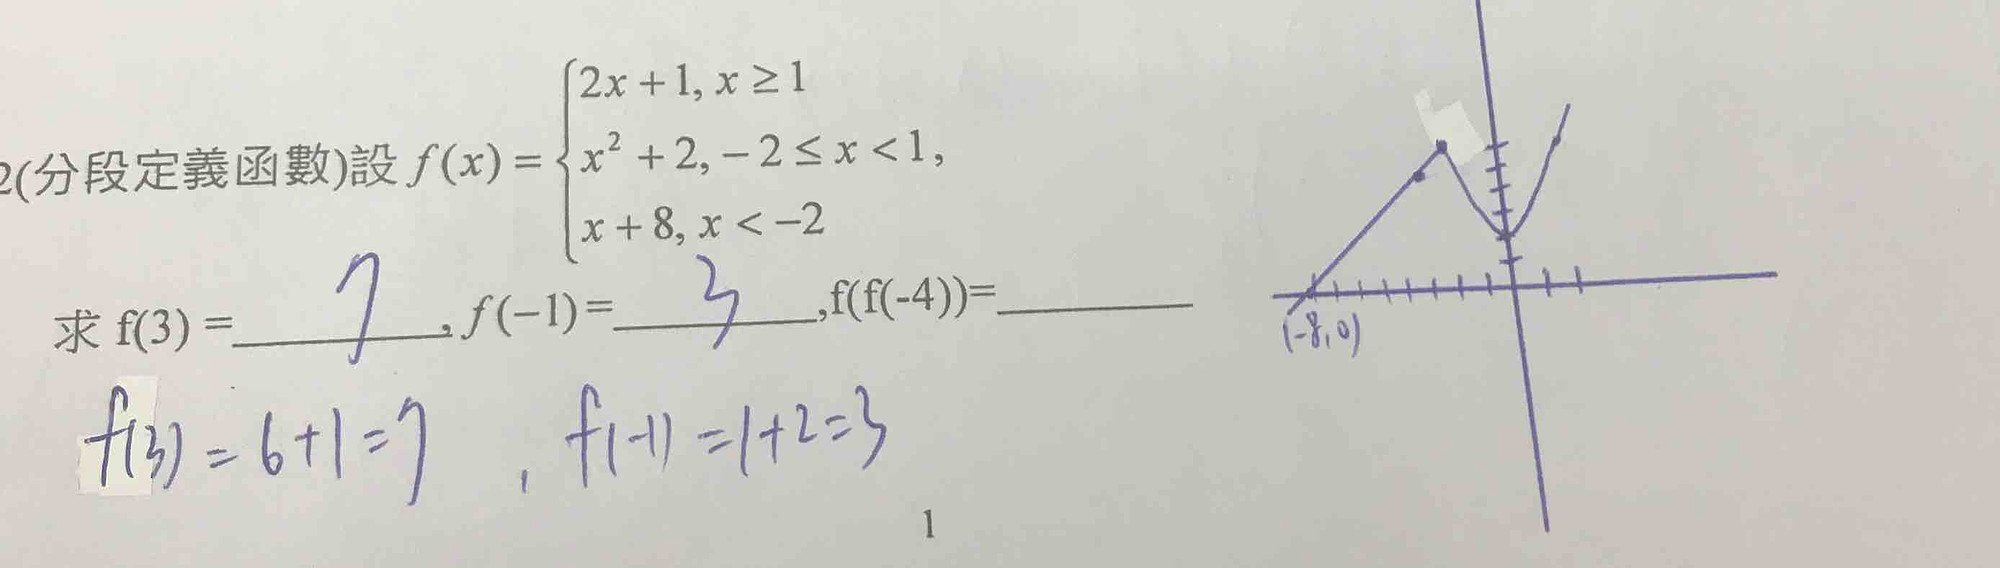 2(分段定義函數)設 f(x) = { 2x + 1, x ≥ 1
x² + 2, – 2 ≤ x < 1,
x + 8, x < –2
求 f(3) = 7 , f(–1) = 3 ,f(f(-4))=
(-8,0)
f(3) = 6+1=7 , f(-1) =1+2=3
1